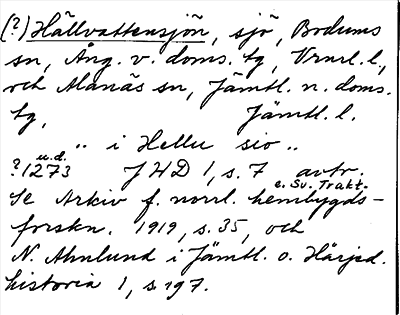 (?) Hällvattensjön, sjö, Bodums
sn, Ång. v. doms. tg, Vrnrl. l.,
och Alanäs sn, Jämtl. n. doms.
tg, Jämtl. l.
" i Hellu sio "
u.d.
?1273 JHD 1, s. 7 avtr.
e. Sv. Trakt.
Se Arkiv f. norrl. hembygds-
forskn. 1919, s. 35, och
N. Ahnlund i Jämtl. o. Härjed.
historia 1, s. 197.